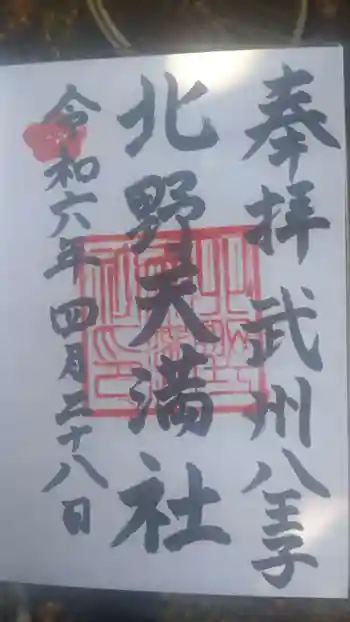 奉拝 武州八王子
北野天満社
令和六年四月二十八日